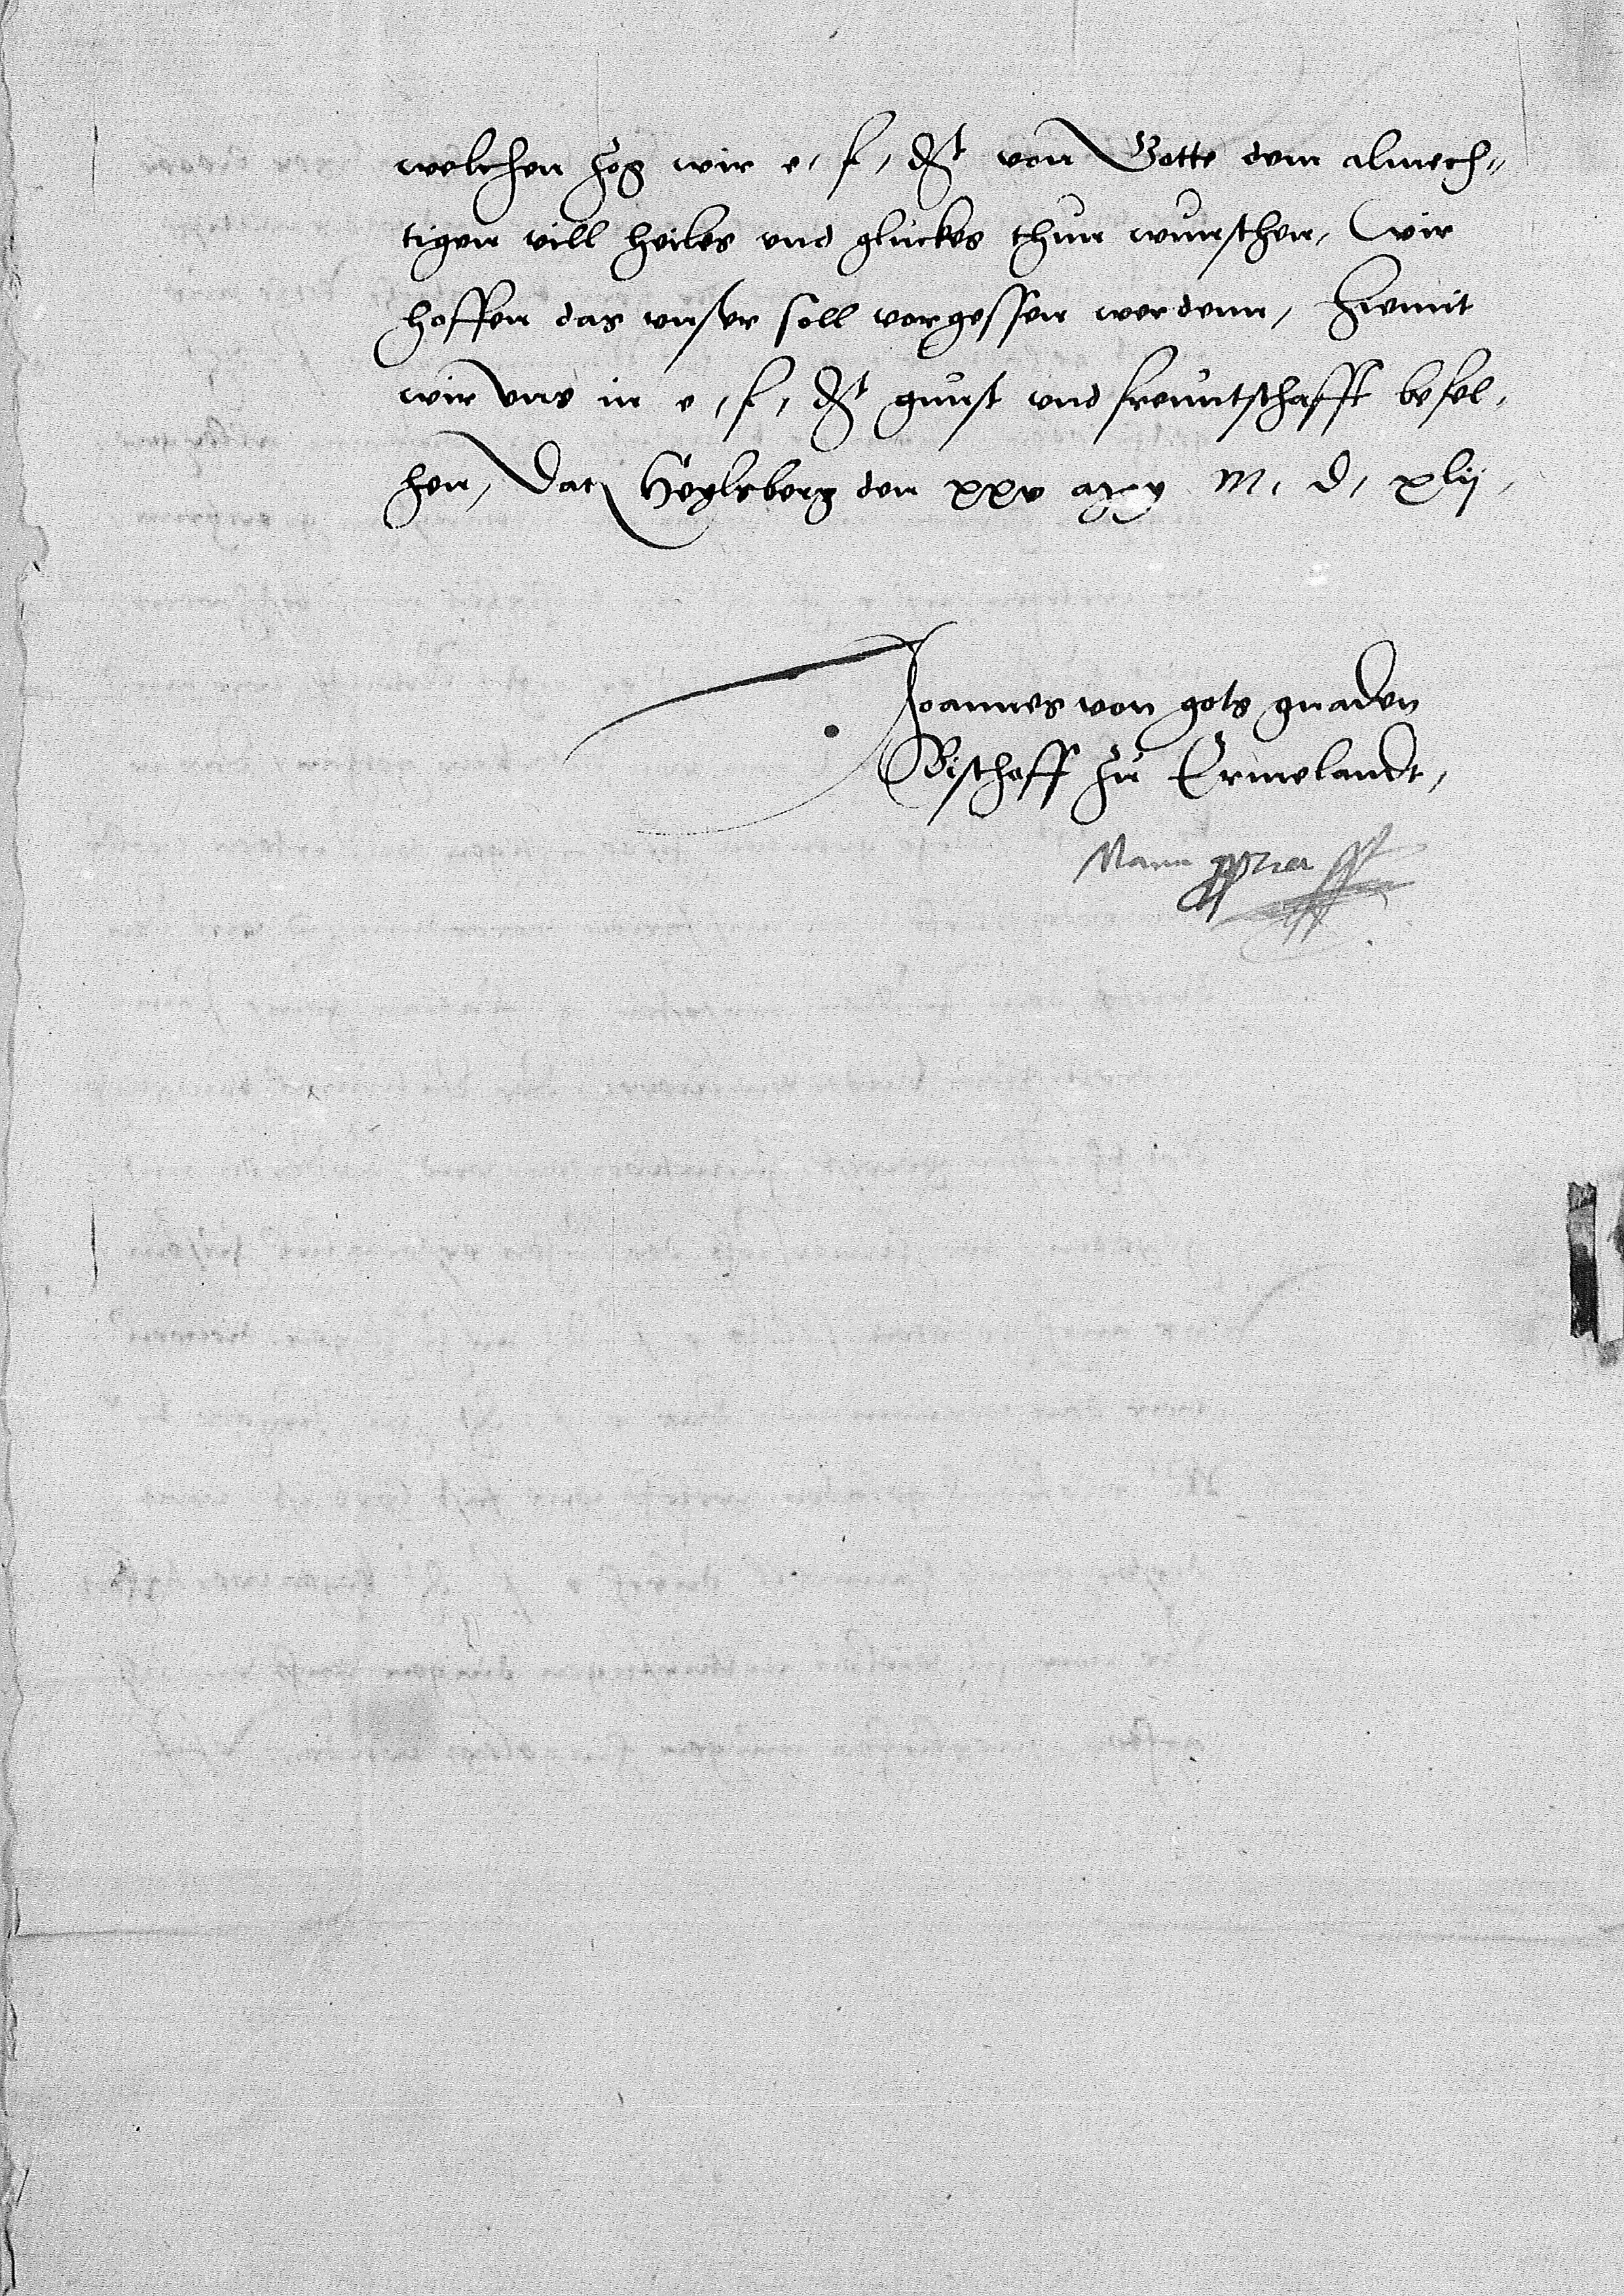 welchen zog wir e, f, d^t von Gotte dem almech„
tigen vill heiles vnd gluckes thun wunschen, Wir
hoffen das vnser soll vorgessen werdenn, Hiemit
wir vns in e, f, d^t gunst vnd freuntschafft befel„
hen, Dat Heylsberg den xxv M, D, xlij,
Joannes von gots gnaden
Bischoff zu Ermelandt,
Manu ppria